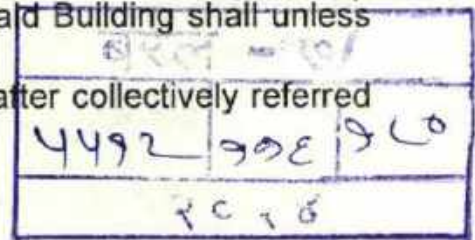 aid Building shall unless
after collectively referred
५५१२ ११६ १८०